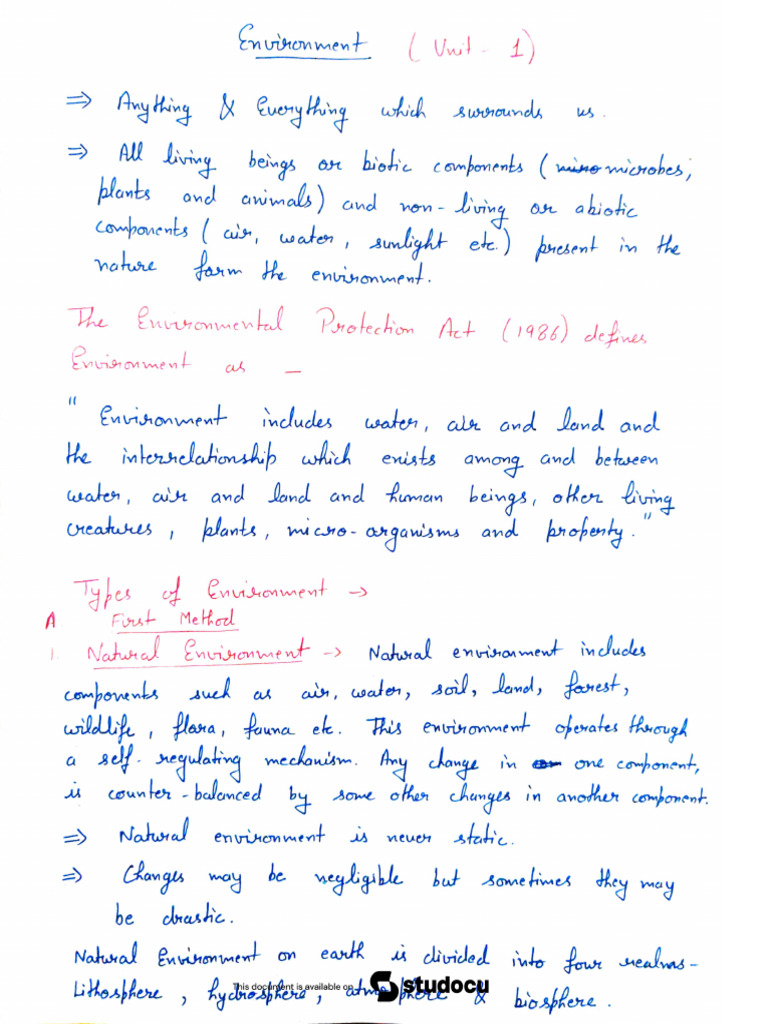 Environment (Unit - 1)
⇒ Anything & Everything which surrounds us.
⇒ All living beings or biotic components (micro microbes,
plants and animals) and non-living or abiotic
components (air, water, sunlight etc.) present in the
nature form the environment.
The Environmental Protection Act (1986) defines
Environment as —
" Environment includes water, air and land and
the interrelationship which exists among and between
water, air and land and human beings, other living
creatures, plants, micro-organisms and property."
Types of Environment →
A First Method
1. Natural Environment → Natural environment includes
components such as air, water, soil, land, forest,
wildlife, flora, fauna etc. This environment operates through
a self-regulating mechanism. Any change in one component,
is counter-balanced by some other changes in another component.
⇒ Natural environment is never static.
⇒ Changes may be negligible but sometimes they may
be drastic.
Natural Environment on earth is divided into four realms-
Lithosphere, hydrosphere, atmosphere & biosphere.
This document is available on studocu